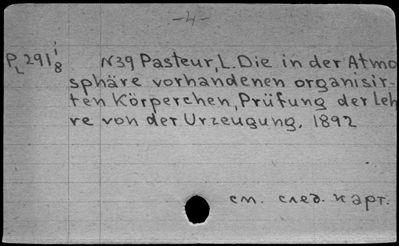 -4-
PL 291 i/8 N39 Pasteur, L. Die in der Atmo
sphäre vorhandenen organisir-
ten Körperchen, Prüfung der Leh
re von der Urzeugung. 1892
см. след. карт.